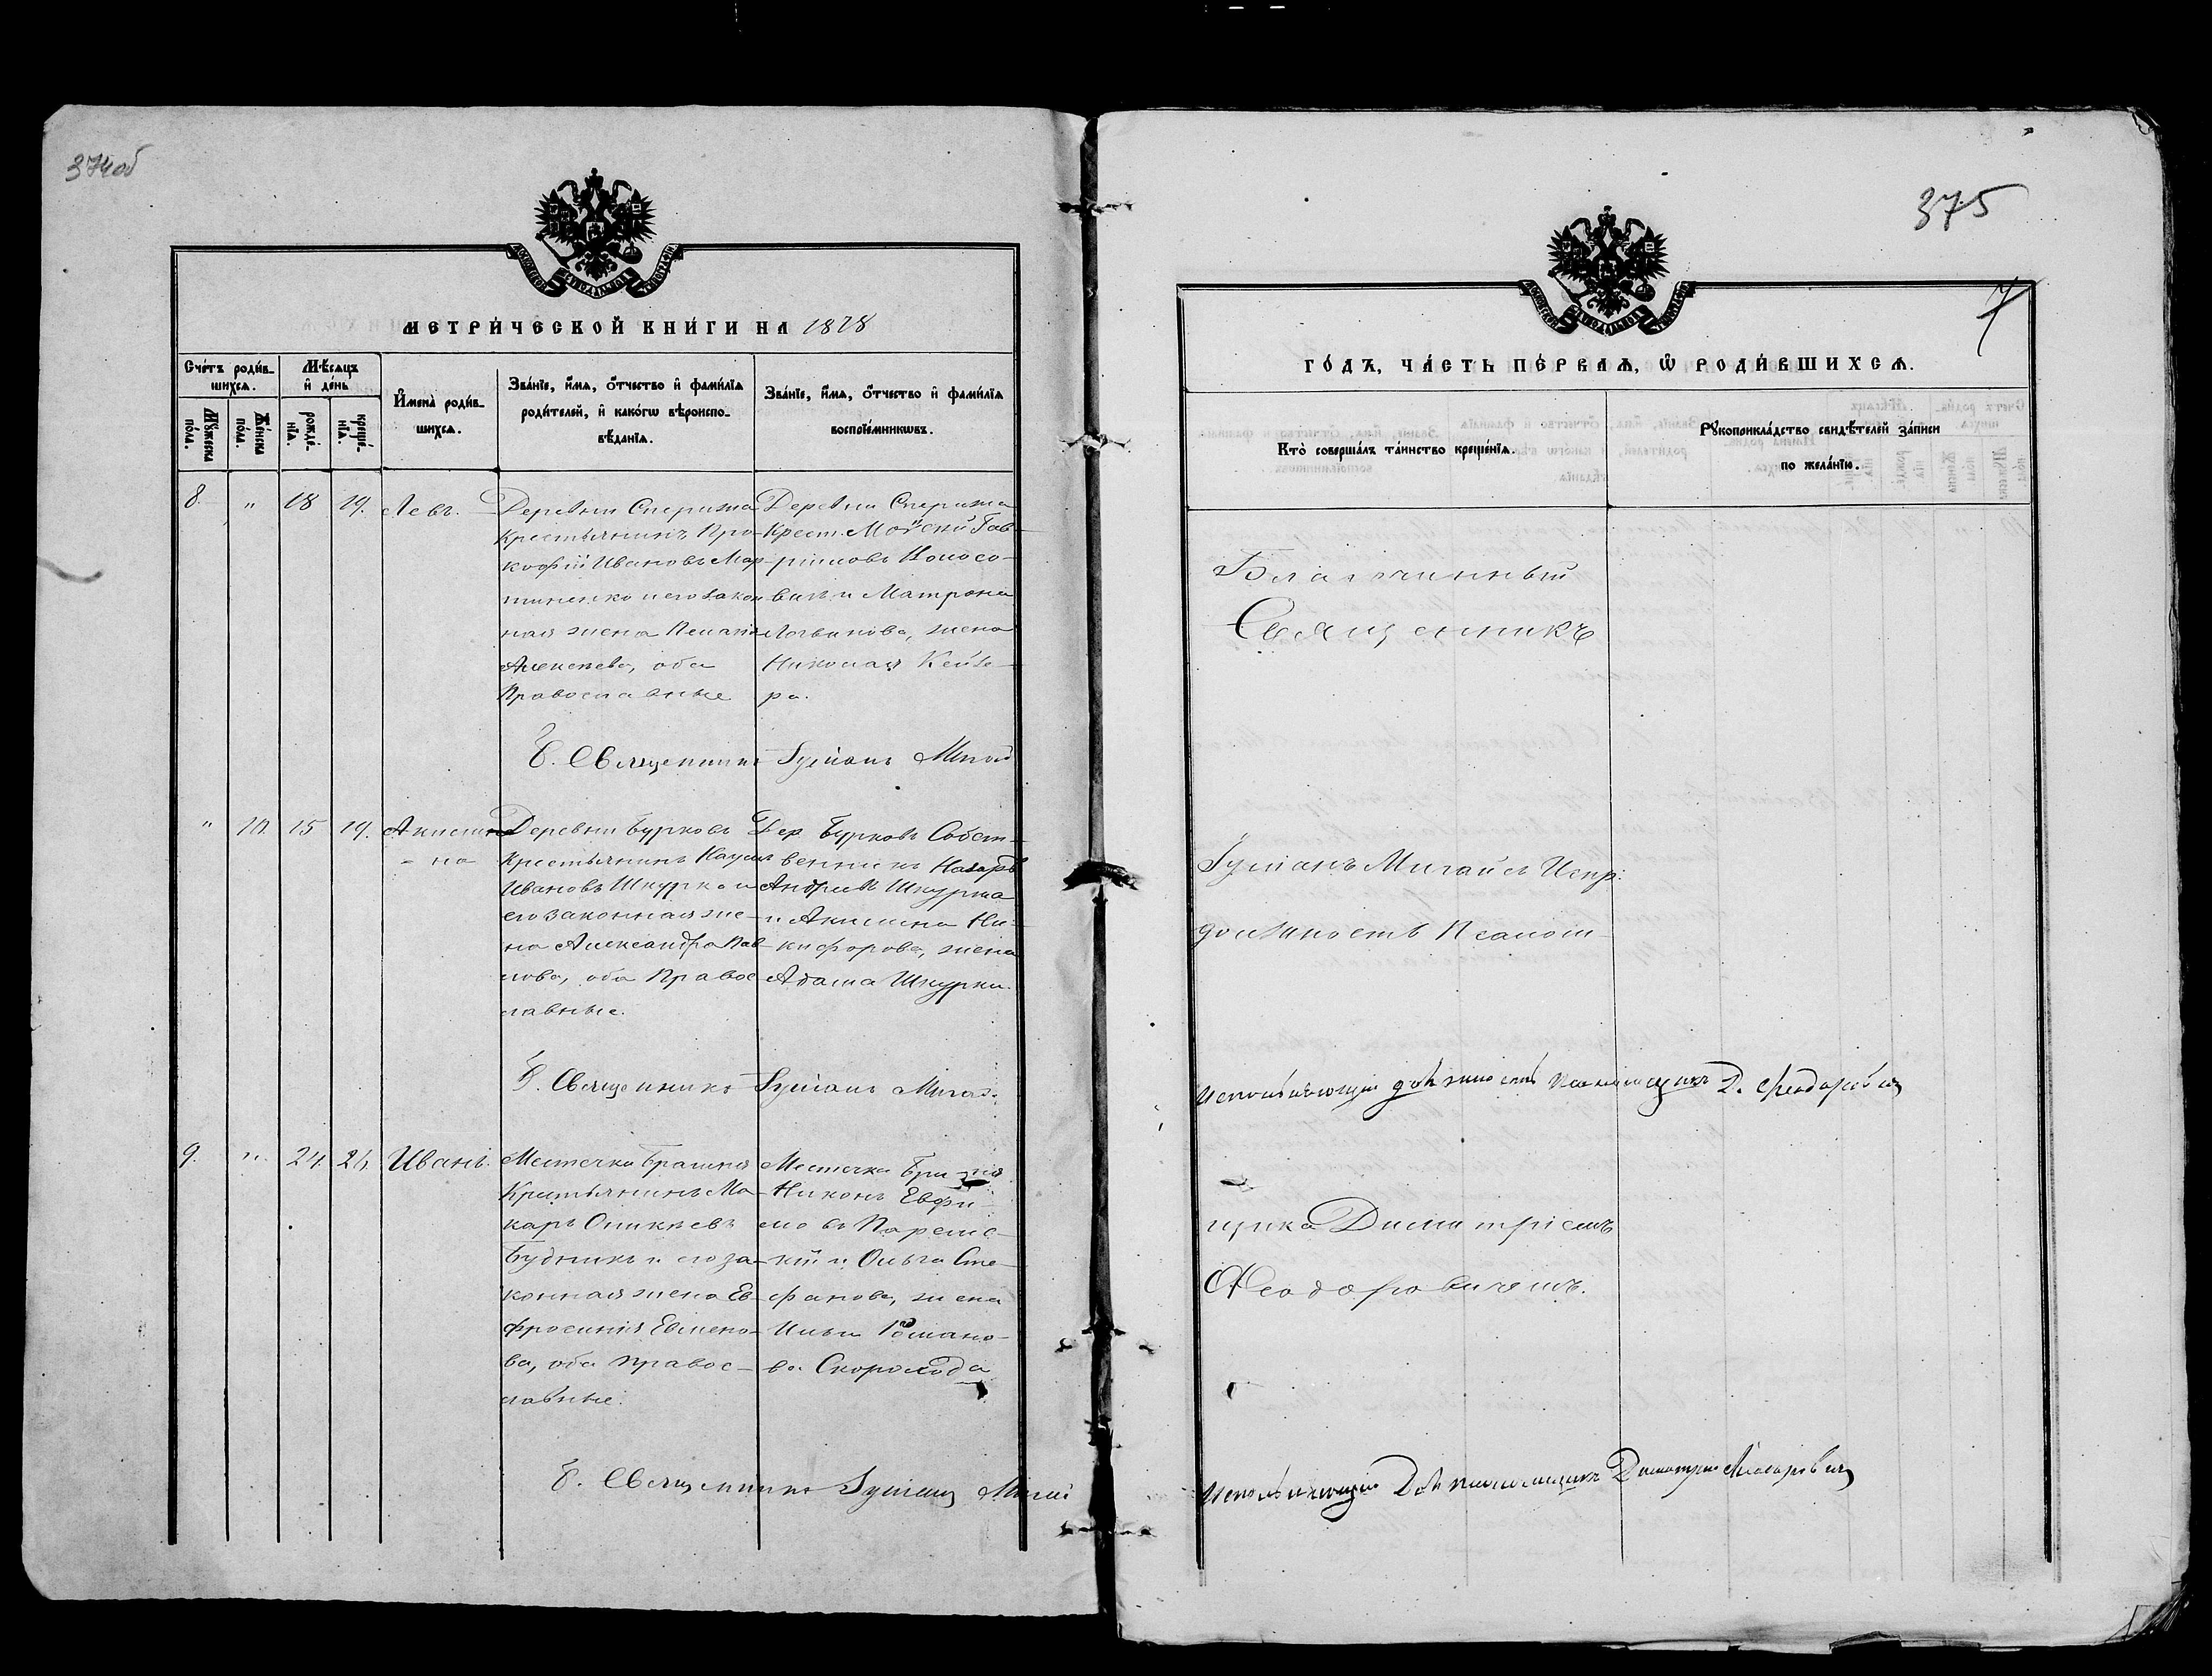 374об
МЕТРИ́ЧЕСКОЙ КНИ́ГИ НА 1878
Сче́тъ роди́в-
шихсѧ.
Мѣ́сѧцъ
и҆ де́нь
И҆мена̀ роди́в-
шихсѧ.
Зва́нїе, и҆́мѧ, ѻ҆́тчество и҆ фами́лїѧ
роди́телей, и҆ како́гѡ вѣроиспо-
вѣ́данїѧ.
Зва́нїе, и҆́мѧ, ѻ҆́тчество и҆ фами́лїѧ
воспрїе́мникѡвъ.
Мꙋ́жеска
по́ла.
Же́нска
по́ла.
рожде́-
нїѧ.
креще́-
нїѧ.
8. " 18 19. Левъ.
Деревни Спорижа
крестьянинъ Про-
кофій Ивановъ Мар-
тиненко и его закон
ная жена
Алексѣева, оба
Православные
Деревни Спорижа
Крест. Моѵсей Гав-
риловъ
вичъ и Матрона
Логвинова, жена
Николая Кейзе-
ра.
Священникъ Гуліанъ
" 10. 15 19. Акилин
- на
Деревни Бурковъ
крестьянинъ Наумъ
Ивановъ Шкурко и
его законная же-
на Александра Пав-
лова, оба Правос
лавные.
Дер. Бурковъ Собст-
венникъ Назаръ
Андреевъ Шкурка
и Акилина Ни-
кифорова, жена
Адама Шкурки.
Священникъ Гуліанъ
9. " 24. 26. Иванъ.
Местечка Брагиня
Крестьянинъ Ма-
каръ Оникѣевъ
Будникъ и его за-
конная жена Ев-
фросинія Евмено-
ва, оба правос-
лавные.
Местечка Брагиня
Никонъ Евфи-
мовъ
кій и Ольга Сте-
фанова, жена
Ильи Романо-
ва Скорохода
Священникъ Гуліанъ
375
7
ГО́ДЪ, ЧА́СТЬ ПЕ́РВАѦ, Ѡ҆ РОДИ́ВШИХСѦ.
Кто̀ соверша́лъ та́инство креще́нїѧ.
Рꙋкоприкла́дство свидѣ́телей за́писи
по жела́нїю.
Благочинный
Священникъ
Гуліанъ Михаилъ Испр:
должность Псалом-
Исполняющій должность Псаломщика Д. Феодоровичъ
щика Димитріемъ
Феодоровичемъ.
Исполняющій Дол псаломщика Димитрій Феодоровичъ